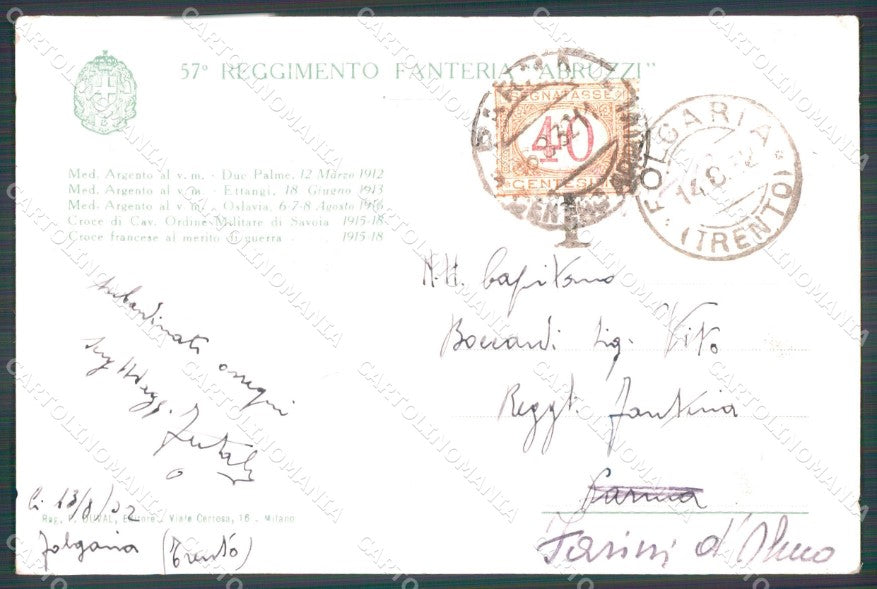 57º REGGIMENTO FANTERIA "ABRUZZI"
Med. Argento al v. m. - Due Palme, 12 Marzo 1912
Med. Argento al v. m. - Ettangi, 18 Giugno 1913
Med. Argento al v. m. - Oslavia, 6-7-8 Agosto 1916
Croce di Cav. Ordine Militare di Savoia 1915-18
Croce francese al merito di guerra 1915-18
SEGNATASSE
40
CENTESIMI
PARMA
T
FOLGARIA
14.8.32
(TRENTO)
N.H. Capitano
Boccardi Sig. Vito
Regg. Fanteria
Parma
d'Olmo
Subordinati ossequi
Serg. Magg.
li 13/8/32
Folgaria (Trento)
Rag. V. DUVAL, Editore - Viale Certosa, 16 - Milano
CARTOLINOMANIA